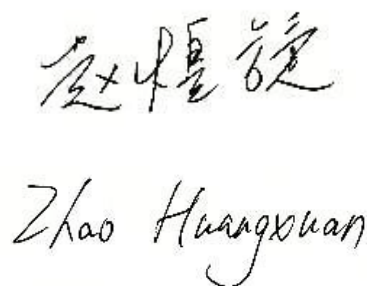 赵煌
Zhao Huangxuan